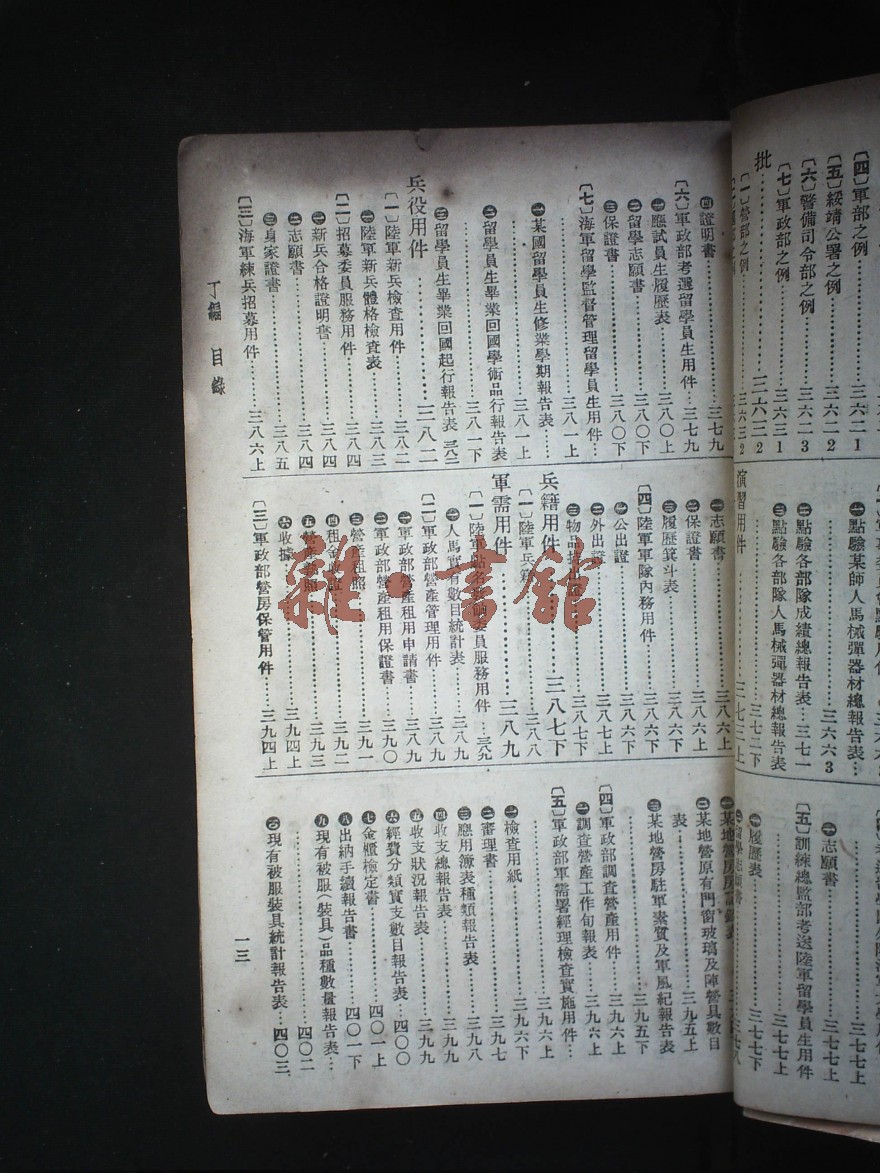 [四]軍部之例………三六二1
[五]綏靖公署之例………三六二2
[六]警備司令部之例………三六二3
[七]軍政部之例………三六三1
批………三六三2
[一]營部之例………三六三2
㊀點驗某師人馬械彈器材總報告表…
………三六六3
㊁點驗各部隊成績總報告表…三七一
㊂點驗各部隊人馬械彈器材總報告表
………三七二下
演習用件………三七三上
㊀志願書………三七七上
[五]訓練總監部考送陸軍留學員生用件
㊀志願書………三七七上
㊁履歷表………三七七下
㊃證明書………三七九
[六]軍政部考選留學員生用件…三七九
㊀應試員生履歷表………三八〇上
㊁留學志願書………三八〇下
㊂保證書………三八〇下
[七]海軍留學監督管理留學員生用件…
………三八一上
㊀某國留學員生修業學期報告表……
………三八一上
㊁留學員生畢業回國學術品行報告表
………三八一下
㊂留學員生畢業回國起行報告表 三八二
兵役用件………三八二
[一]陸軍新兵檢查用件………三八二
㊀陸軍新兵體格檢查表………三八三
[二]招募委員服務用件………三八四
㊀新兵合格證明書………三八四
㊁志願書………三八四
㊂身家證書………三八五
[三]海軍練兵招募用件………三八六上
㊀志願書………三八六上
㊁保證書………三八六上
㊂履歷箕斗表………三八六下
[四]陸軍軍隊內務用件………三八六下
㊀公出證………三八六下
㊁外出證………三八七上
㊂物品………三八七下
兵籍用件………三八七下
[一]陸軍兵籍………三八八
軍需用件………三八九
[一]陸軍點名委員服務用件…三八九
㊀人馬實有數目統計表………三八九
[二]軍政部營產管理用件………三八九
㊀軍政部營產租用申請書………三八九
㊁軍政部營產租用保證書………三九〇
㊂營產租照………三九一
㊃租金………三九二
㊄營產………三九三
㊅收據………三九四上
[三]軍政部營房保管用件………三九四上
㊁某地營原有門窗玻璃及陣營具數目
表………三九五上
㊂某地營房駐軍素質及軍風紀報告表
………三九五下
[四]軍政部調查營產用件………三九六上
㊀調查營產工作旬報表………三九六上
[五]軍政部軍需署經理檢查實施用件…
………三九六上
㊀檢查用紙………三九六下
㊁審理書………三九七
㊂應用簿表種類報告表………三九八
㊃收支總報告表………三九九
㊄收支狀況報告表………三九九
㊅經費分類實支數目報告表…四〇〇
㊆金櫃檢定書………四〇一上
㊇出納手續報告書………四〇一下
㊈現有被服(裝具)品種數量報告表…
………四〇二
㊉現有被服裝具統計報告表…四〇三
丁編　目錄
一三
雜·書館